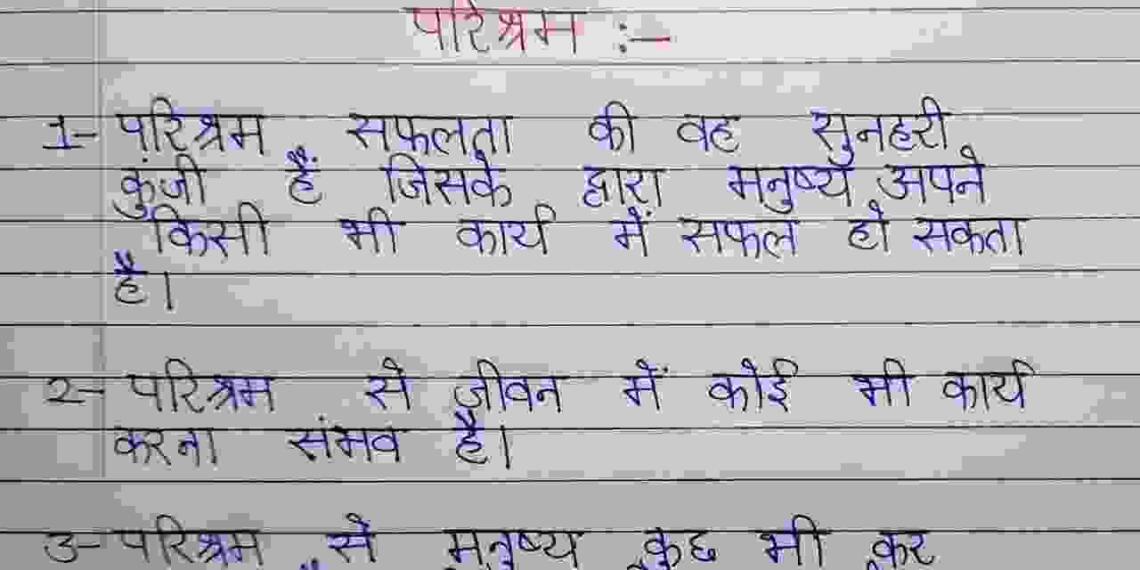 परिश्रम :-
1- परिश्रम सफलता की वह सुनहरी
कुंजी हैं जिसके द्वारा मनुष्य अपने
किसी भी कार्य में सफल हो सकता
है।
2- परिश्रम से जीवन में कोई भी कार्य
करना संभव है।
3- परिश्रम से मनुष्य कुछ भी कर